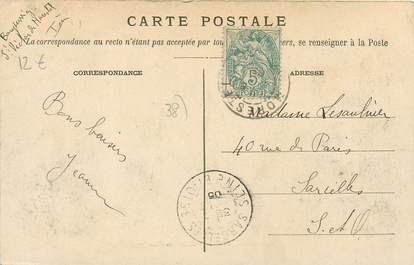 CARTE POSTALE
La correspondance au recto n'étant pas acceptée par tou ers, se renseigner à la Poste
12 €
CORRESPONDANCE
ADRESSE
38)
Bons baisers
Jeanne
Madame Lesaulnier
40 rue de Paris
Sarcelles
S. et O.
SARCELLES
05
SEINE ET OISE